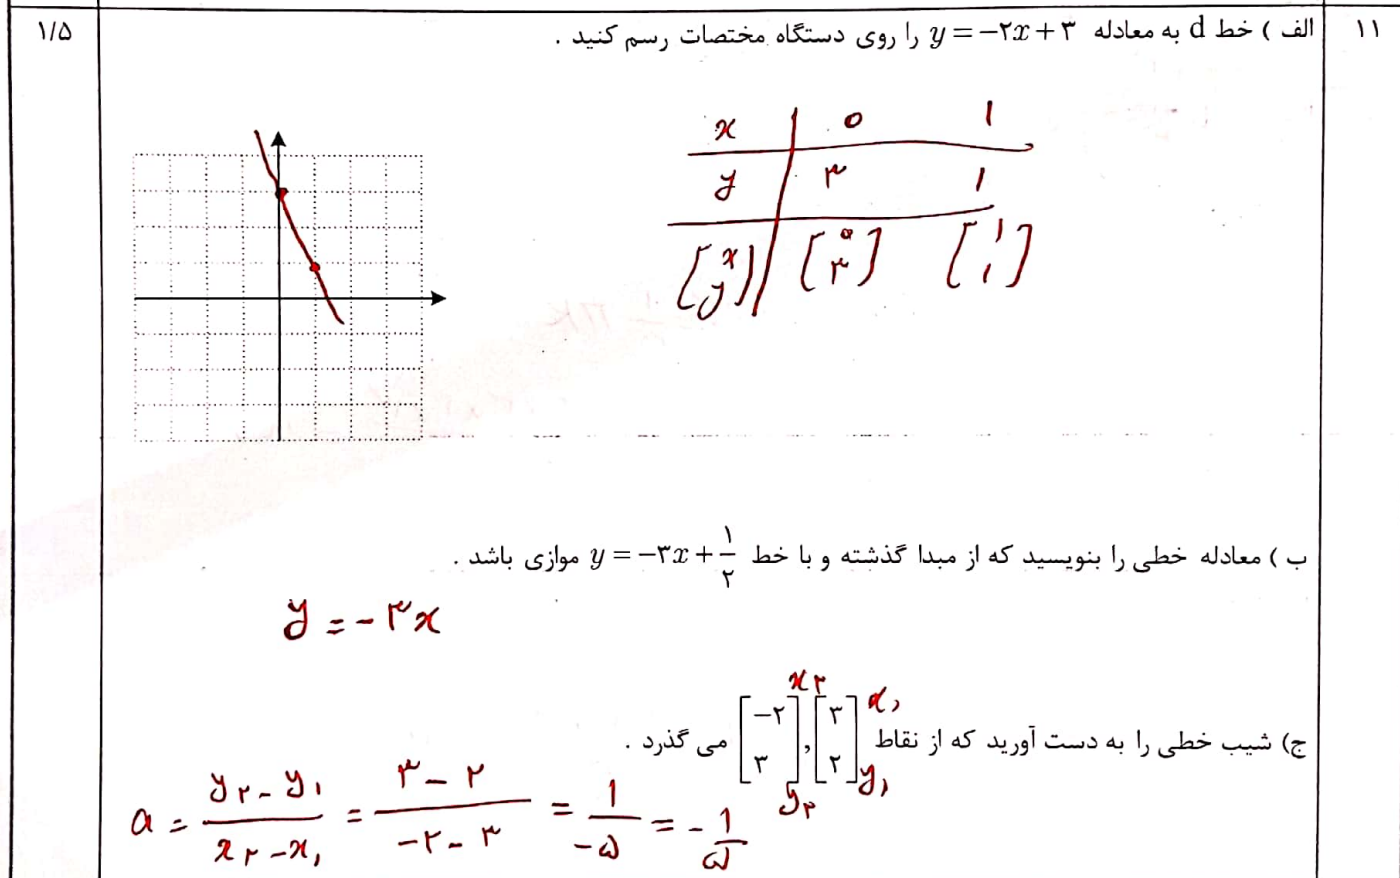 ۱۱
الف ) خط d به معادله y = −۲x + ۳ را روی دستگاه مختصات رسم کنید .
۱/۵
x | ۰ ۱
y | ۳ ۱
[x y] | [۰ ۳] [۱ ۱]
ب ) معادله خطی را بنویسید که از مبدا گذشته و با خط y = −۳x + ۱/۲ موازی باشد .
y = − ۳x
ج) شیب خطی را به دست آورید که از نقاط [۳ ۲] , [−۲ ۳] می گذرد .
x۲ x۱
y۲ y۱
a = (y۲ − y۱)/(x۲ − x۱) = (۳ − ۲)/(−۲ − ۳) = ۱/−۵ = − ۱/۵